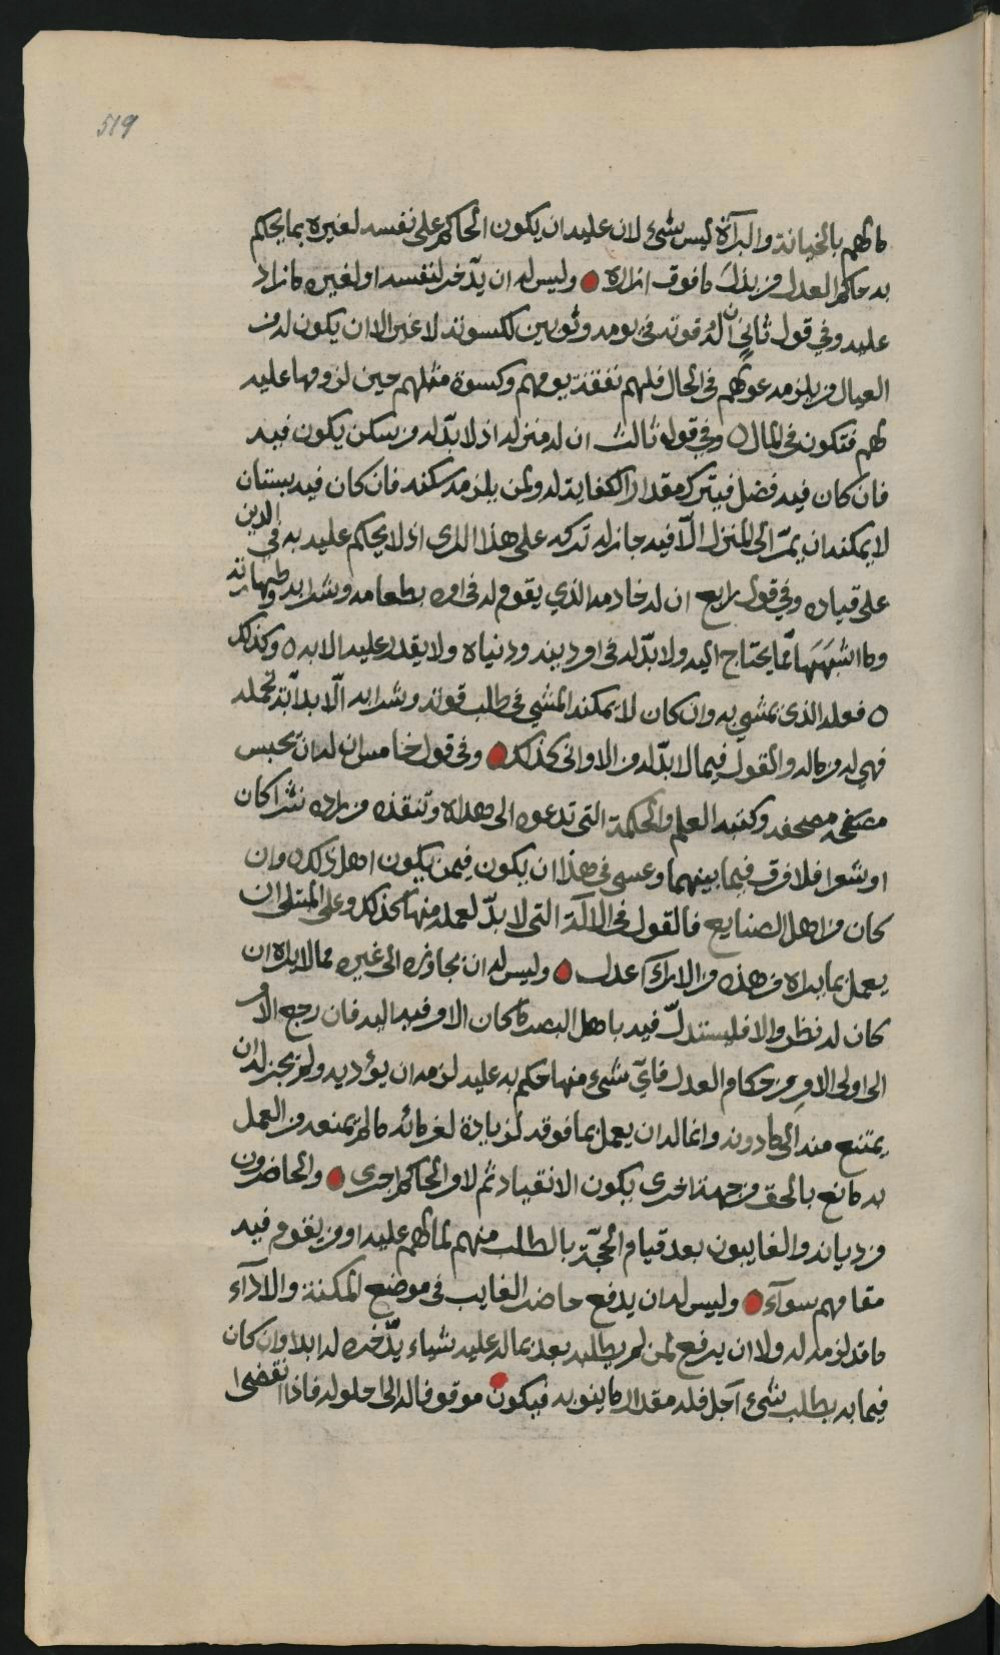 519
ما لهم بالخيانة والبرآة ليس بشئ لان عليه ان يكون الحاكم على نفسه لغيره بما يحكم
به حاكم العدل من بذلك ما فوق ازاره وليس له ان يدّخر لنفسه او لغيره ما زاد
عليه وفي قول ثاني ان له قوته في يومه وثوبين لكسوته لا غير الا ان يكون له من
العيال من يلزمه عولهم في الحال فلهم نفقة يومهم وكسوة مثلهم حين لزومها عليه
لهم فتكون في المال ٥ وفي قول ثالث ان له منزله اذ لا بدّ له من سكن يكون فيه
فان كان فيه فضل فيترك مقدار الكفاية له ولمن يلزمه سكنه فان كان فيه بستان
لا يمكنه ان يمرّ الى المنزل الّا فيه جاز له تركه على هذا الراى اذ لا يحكم عليه به في الدين
على قياده وفي قول رابع ان له خادمه الذي يقوم له في امره بطعامه وشرابه وطهارته
وما اشبهها ممّا يحتاج اليه ولا بدّ له في امر دينه ودنياه ولا يقدر عليه الا به ٥ وكذلك
٥ فعله الذى يمشي به وان كان لا يمكنه المشي في طلب قوته وشرابه الّا بدآبّة تحمله
فهي له من ماله والقول فيما لا بدّ له من الاوانى كذلك وفي قول خامس ان له ان تحبس
مصحفه وكتبه العلم والحكمة التى تدعوه الى هداه وتنقذه من رداه نثرا كان
او شعرا فلا فرق فيما بينهما وعسى في هذا ان يكون فيمن يكون اهل ذلك وان
كان من اهل الصنايع فالقول في الآلة التى لا بدّ لعمله منها كذلك وعلى المبتلى ان
يعمل بما يراه من هذه من الارآء اعدل وليس له ان يجاوزه الى غيره مما لا يراه ان
كان له نظر والا فليستدلّ فيه باهل البصر ما كان الامر فيه اليه فان رجع الامر
الى اولى الامر من حكام العدل فايّ شئ منها حكم به عليه لزمه ان يؤديه ولم يجز له ان
يمتنع منه الى ما دونه وانما له ان يعمل بما فوقه لزيادة لغرمائه ما لم يمنعه من العمل
به مانع بالحق من جهة اخرى يكون الانقياد ثم لامر الحاكم اجرى والحاضرون
من ديانه والغايبون بعد قيام الحجّة بالطلب منهم لما لهم عليه او من يقوم فيه
مقامهم سوآء وليس له ان يدفع حاضر الغايب في موضع المكنة والادآء
ما قد لزمه له ولا ان يرفع لمن لم يطلبه بعد بماله عليه شياء يدّخره له ابدا وان كان
فيما به يطلب شئ آجل فله مقدار ما ينوبه فيكون موقوفا له الى حلوله فاذا انقضى